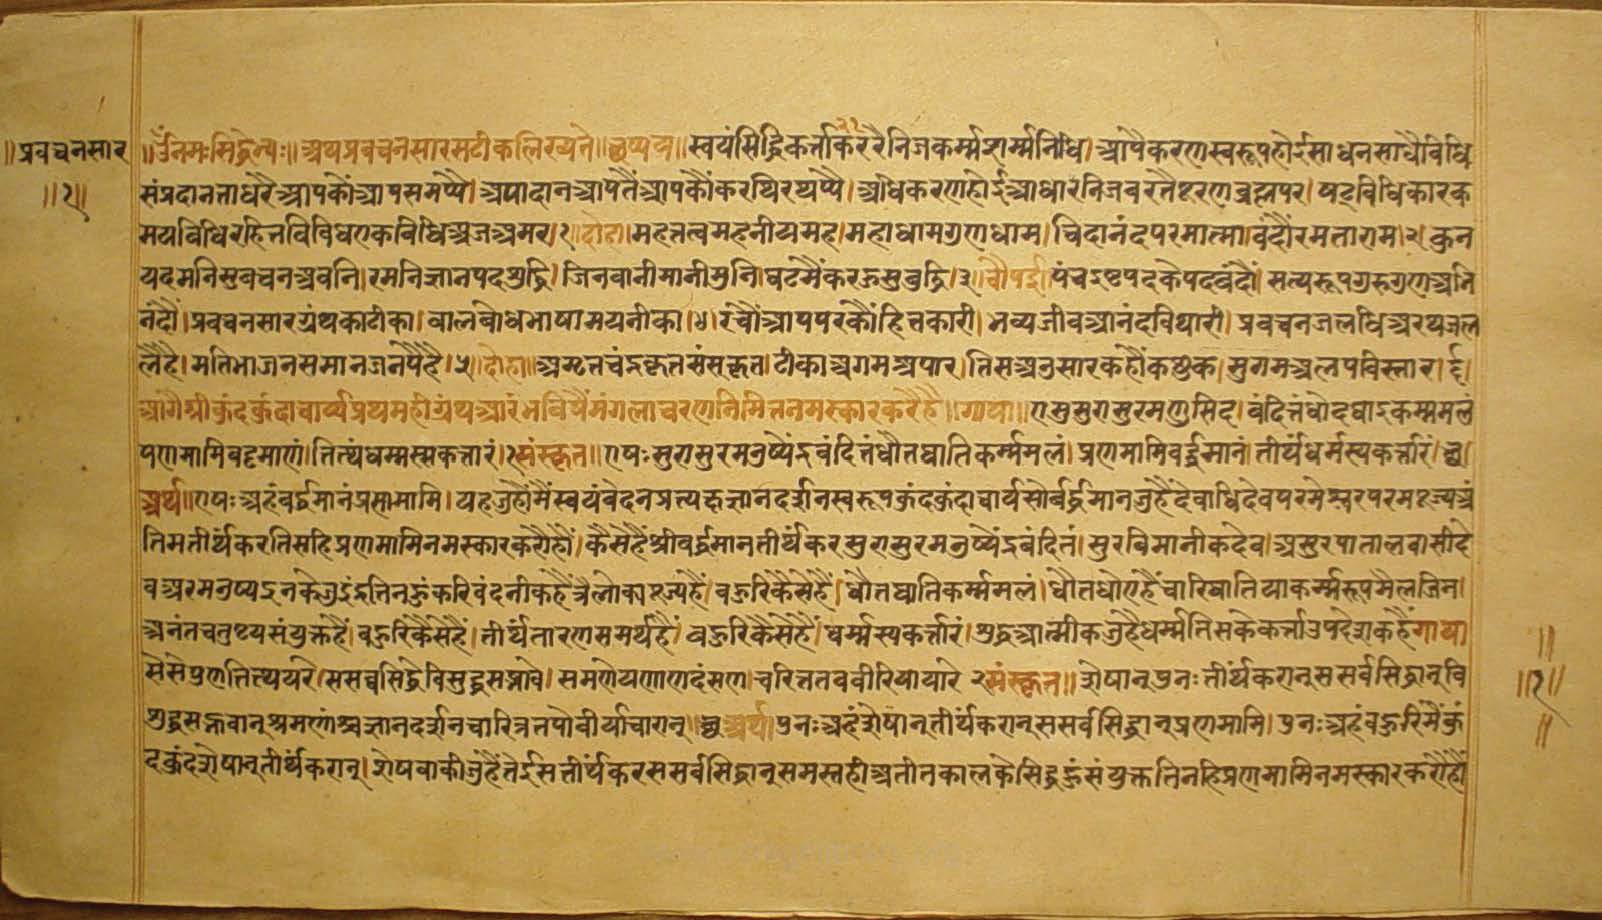 ॥प्रवचनसार
॥१॥
॥ॐनमःसिद्धेभ्यः॥अथप्रवचनसारसटीकलिख्यते॥छप्पय॥स्वयंसिद्धिकर्त्ताकररैनिजकर्म्मशर्म्मनिधि।आपैकरणस्वरूपहोईसाधनसाधैविधि
संप्रदानताधरैआपकौंआपसमप्पै।अपादानआपतैंआपकौंकरथिरथप्पै।अधिकरणहोईआधारनिजवरतैपूरणब्रह्मपर।षट्विधिकारक
मयविधिरहितविविधएकविधिअजअमर।१।दोहा।महतत्वमहनीयमह।महाधामगुणधाम।चिदानंदपरमात्मा।वंदौंरमताराम।२।कुन
यदमनिसुवचनअवनि।रमनिज्ञानपदशुद्धि।जिनवानीमानीमुनि।घटमैंकरऊसुबुद्धि।३।चौपई।पंचइष्टपदकेपदवंदौं।सत्यरूपगुरुगुणअभि
नंदौं।प्रवचनसारग्रंथकीटीका।बालबोधभाषामयनीका।४।रचौंआपपरकौंहितकारी।भव्यजीवआनंदविथारी।प्रवचनजलधिअरथजल
लैहै।मतिभाजनसमानजनपैहै।५।दोहा॥अमृतचंद्रकृतसंसकृत।टीकाअगमअपार।तिसअनुसारकहौंकछुक।सुगमअलपविस्तार।६।
आगैश्रीकुंदकुंदाचार्य्यप्रथमहीग्रंथआरंभविषैंमंगलाचरणनिमित्तनमस्कारकरैहै॥गाथा॥एससुरासुरमणुसिंद।वंदितंधोदघाइकम्ममलं
पणमामिवढ्ढमाणं।तित्थंधम्मस्सकत्तारं।१संस्कृत॥एषःसुरासुरमनुष्येंद्रवंदितंधौतघातिकर्म्ममलं।प्रणमामिवर्द्धमानं।तीर्थंधर्मस्यकर्त्तारं।छ।
अर्थ॥एषःअहंवर्द्धमानंप्रणमामि।यहजुहौंमैंस्वयंवेदनप्रत्यक्षज्ञानदर्शनस्वरूपकुंदकुंदाचार्यसोवर्द्धमानजुहैंदेवाधिदेवपरमेश्वरपरमपूज्यअं
तिमतीर्थंकरतिसहिप्रणमामिनमस्कारकरौंहौं।कैसेहैंश्रीवर्द्धमानतीर्थंकरसुरासुरमनुष्येंद्रवंदितं।सुरविमानीकदेव।असुरपातालवासीदे
वअरमनुष्यइनकेजुइंद्रतिनुकरिवंदनीकहैंत्रैलोकपूज्यहैं।बहुरिकैसेहैं।धौतघातिकर्म्ममलं।धौतधोएहैंचारिघातियाकर्म्मरूपमैलजिन।
अनंतचतुष्टयसंयुक्तहैं।बहुरिकैसेहैं।तीर्थंतारणसमर्थहैं।बहुरिकैसेहैं।धर्म्मस्यकर्त्तारं।शुद्धआत्मीकजुहैधर्म्मतिसकेकर्त्ताउपदेशकहैंगाथा
सेसेपुणतित्थयरे।ससव्वसिद्धेविसुद्धसब्भावे।समणेयणाणदंसण।चरित्ततववीरियायारे२संस्कृत॥शेषान्पुनःतीर्थंकरान्ससर्वसिद्धान्वि
शुद्धसद्भावान्श्रमणांश्चज्ञानदर्शनचारित्रतपोवीर्याचारान्।छअर्थ।पुनःअहंशेषान्तीर्थंकरान्ससर्वसिद्धान्प्रणमामि।पुनःअहंबहुरिमैंकुं
दकुंदशेषान्तीर्थंकरान्।शेषबाकीजुहैंतेईसतीर्थंकरससर्वसिद्धान्समस्तहीअतीतकालकेसिद्धहुंसंयुक्ततिनहिप्रणमामिनमस्कारकरौंहौं
॥१॥